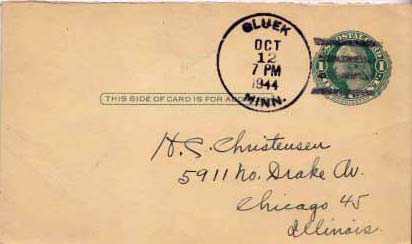 GLUEK
OCT
12
7 PM
1944
MINN.
1 1
THIS SIDE OF CARD IS FOR
H. C. Christensen
5911 No. Drake Av.
Chicago 45
Illinois.